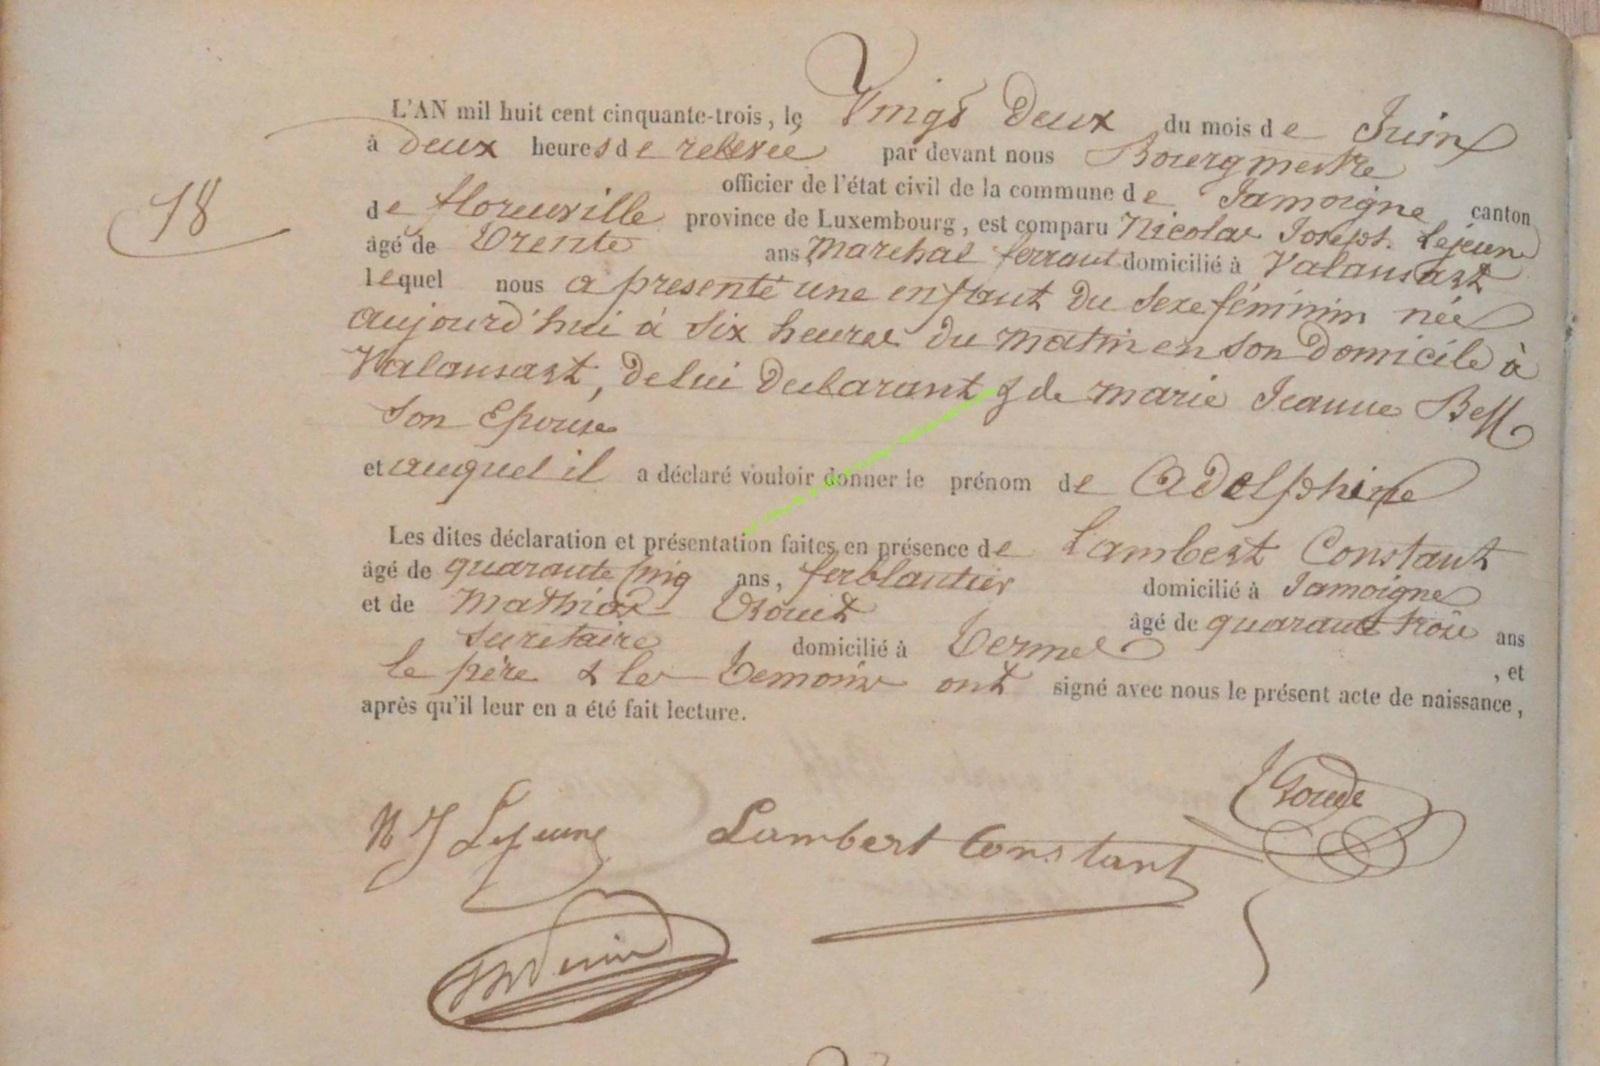 L'AN mil huit cent cinquante-trois, le Vingt Deux du mois de Juin
à deux heures de relevée par devant nous Bourgmestre
officier de l'état civil de la commune de Jamoigne canton
18
de florenville province de Luxembourg, est comparu Nicolas Joseph Lejeune
âgé de trente ans marechal ferrant domicilié à Valansart
lequel nous a presenté une enfant du sexe féminin née
aujourd'hui à six heures du matin en son domicile à
Valansart, de lui declarant & de marie Jeanne
son Epouse
et auquel il a déclaré vouloir donner le prénom de Adolphine
Les dites déclaration et présentation faites en présence de Lambert Constant
âgé de quarante cinq ans, ferblantier domicilié à Jamoigne
et de Mathias âgé de quarante trois ans
secretaire domicilié à Termes , et
le père & les temoins ont signé avec nous le présent acte de naissance,
après qu'il leur en a été fait lecture.
N J Lejeune Lambert Constant